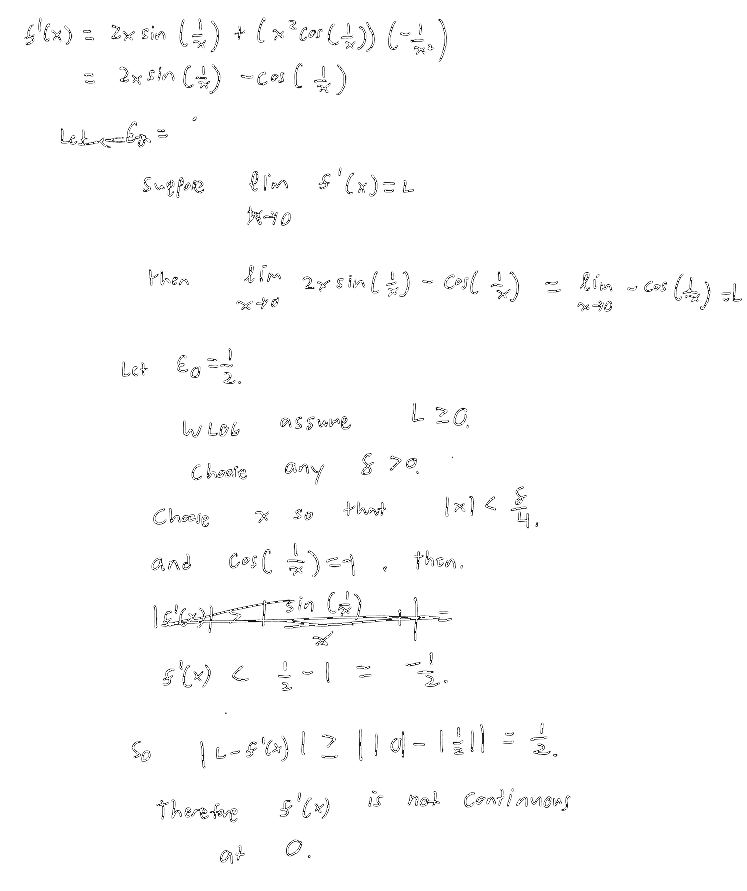 f'(x) = 2x sin (1/x) + (x² cos (1/x)) (-1/x²)
= 2x sin (1/x) - cos (1/x)
Let ε₀ =
suppose lim f'(x) = L
x→0
then lim 2x sin (1/x) - cos (1/x) = lim - cos (1/x) = L
x→0 x→0
Let ε₀ = 1/2.
WLOG assume L ≥ 0.
Choose any δ > 0.
Choose x so that |x| < δ/4,
and cos (1/x) = 1, then.
|f'(x)| > | sin (1/x) / x | =
f'(x) < 1/2 - 1 = -1/2.
So |L - f'(x)| ≥ ||0| - |1/2|| = 1/2.
Therefore f'(x) is not continuous
at 0.